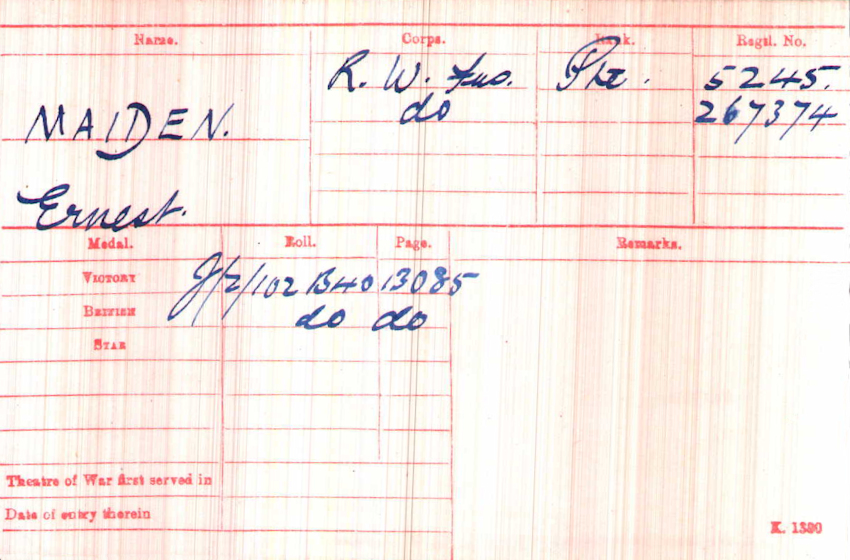 Name. Corps. Rank. Regtl. No.
R. W. Fus. Pte. 5245.
do 267374
MAIDEN.
Ernest.
Medal. Roll. Page. Remarks.
VICTORY J/2/102 B40 13085
BRITISH do do
STAR
Theatre of War first served in
Date of entry therein
K. 1380